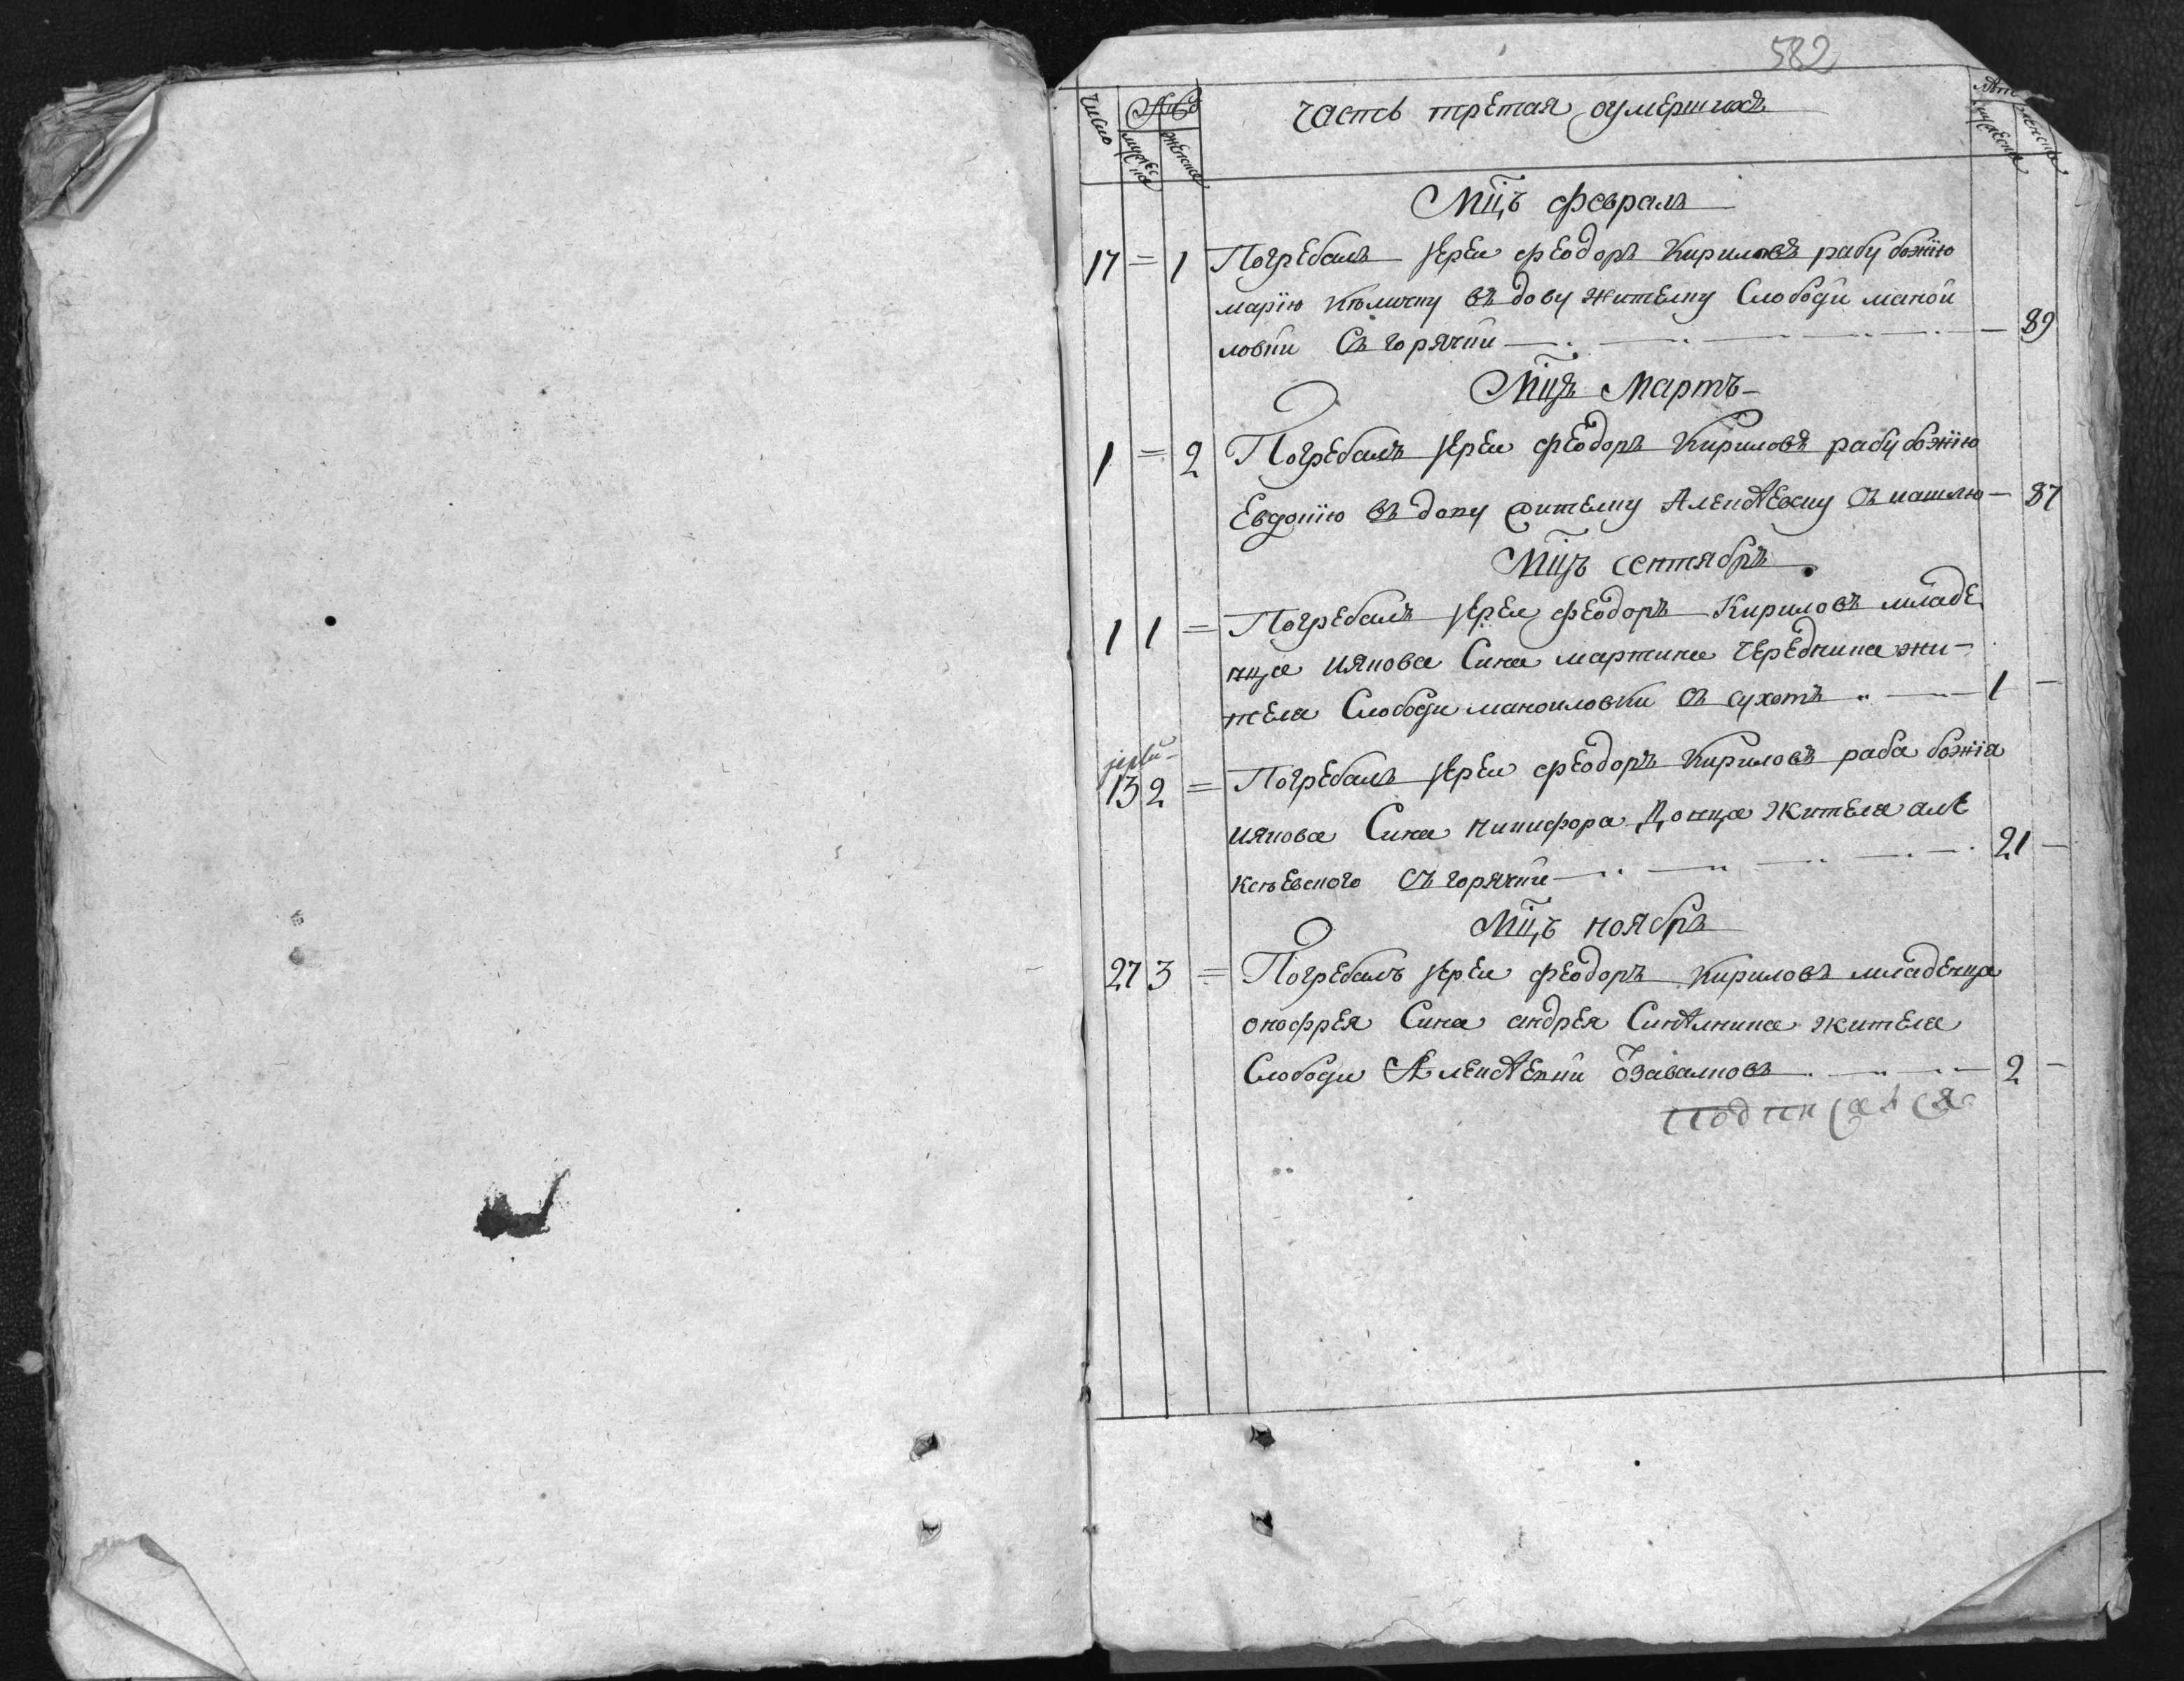 582
Число мужеска женска часть третая оумершихъ лѣт мужеска женска
Мцъ февралъ
17 = 1 Погребалъ іерей феодоръ Кириловъ рабу божію
марію вдову жителку Слободи маной
ловки Съ горячки — 89
Мцъ Мартъ
1 = 2 Погребалъ іерей феодоръ Кириловъ рабу божію
Евдокію въдову жителку Алексѣевку съ кашлю — 87
Мцъ сентябръ
1 1 = Погребалъ іерей феодоръ Кириловъ младе
нца Якова Сина мартина Чередника жи-
теля Слободи маноиловки съ сухотъ — 1 —
13 2 = Погребалъ іерей феодоръ Кириловъ раба божія
Якова Сина никифора Донца жителя але
ксѣевского съ горячки — 21 —
Мцъ ноябръ
27 3 = Погребалъ іерей феодоръ Кириловъ младенца
онофрея Сина андрея жителя
Слободи Алексѣевки — 2 —